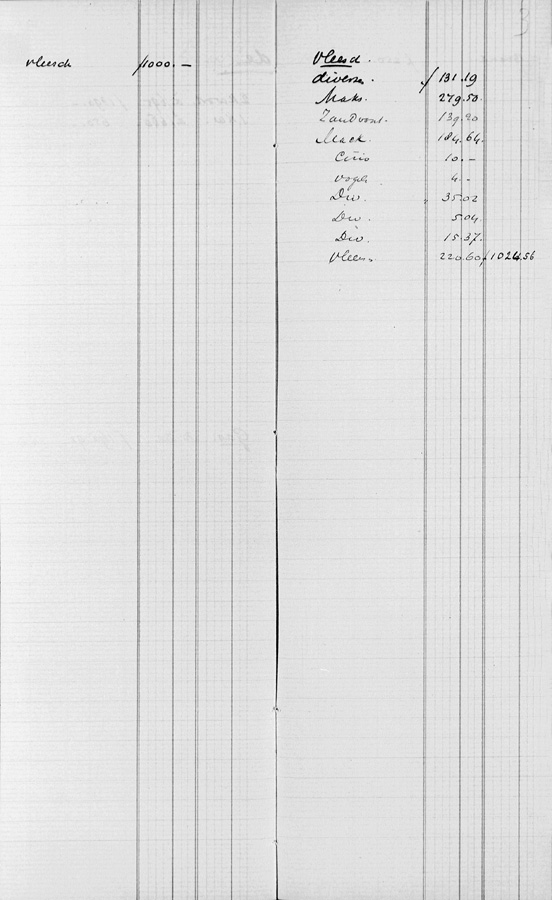 3
vleesch f 1000.—
Vleesch.
diversen. f 131.19
Maks. 279.50.
Zandvoort. 139.20
Mack. 184.64.
10.—
4.—
Div. 35.02
Div. 5.04
Div. 15.37.
Vleesch 220.60 f 1024.56